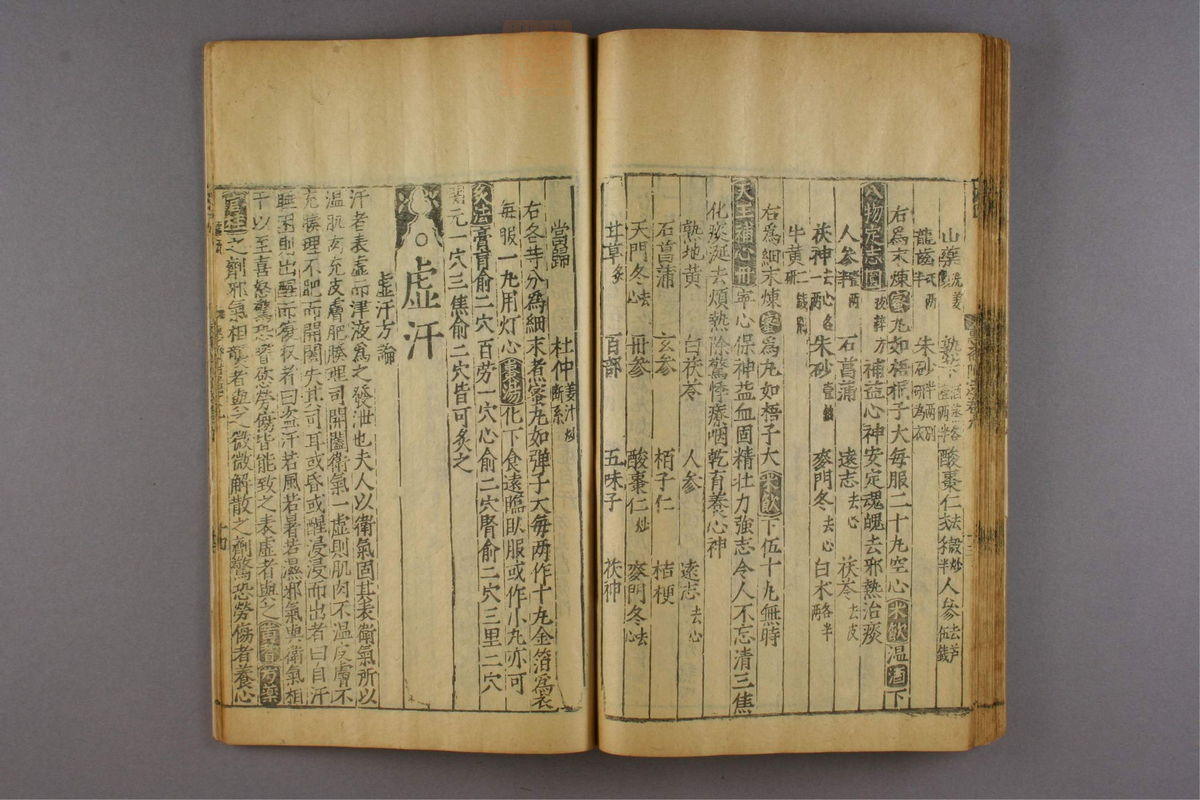 山藥 洗姜製 熟下 酸棗仁 去殼炒 人參 去芦 伍錢
龍齒 弍両半 朱砂 半両別研為衣
右爲末煉蜜丸如梧桐子大每服二十丸空心米飲温酒下
八物定志圓 補益心神安定魂魄去邪熱治痰
人參 壹両半 石菖蒲 遠志 去心 茯苓 去皮
茯神 去心各一両 朱砂 壹錢 麥門冬 去心 白朮 各半両
牛黃 二錢 研
右爲細末煉蜜爲丸如梧子大米飲下伍十丸無時
天王補心丹 寧心保神益血固精壯力強志令人不忘清三焦
化痰涎去煩熱除驚悸療咽乾育養心神
熟地黃 白茯苓 人參 遠志 去心
石菖蒲 玄參 栢子仁 桔梗
天門冬 去心 丹參 酸棗仁 炒 麥門冬 去心
甘草 炙 百部 五味子 茯神
當歸 杜仲 姜汁炒断糸
右各等分爲細末煉蜜丸如弹子大每両作十丸金箔爲衣
每服一丸用灯心棗湯化下食遠臨臥服或作小丸亦可
灸法 膏肓俞二穴百劳一穴心俞二穴腎俞二穴三里二穴
関元一穴三焦俞二穴皆可灸之
虛汗
虛汗方論
汗者表虛而津液爲之發泄也夫人以衛氣固其表衛氣所以
温肌肉充皮膚肥腠理司開闔衛氣一虛則肌肉不温皮膚不
充腠理不肥而開闔失其司耳或昏或醒浸浸而出者曰自汗
睡困則出醒而復收者曰盗汗若風若暑若濕邪氣與衛氣相
干以至喜怒驚恐者慾勞傷皆能致之表虛者與之黄耆芍藥
官桂之劑邪氣相襲者與之微微解散之劑驚恐勞傷者養心